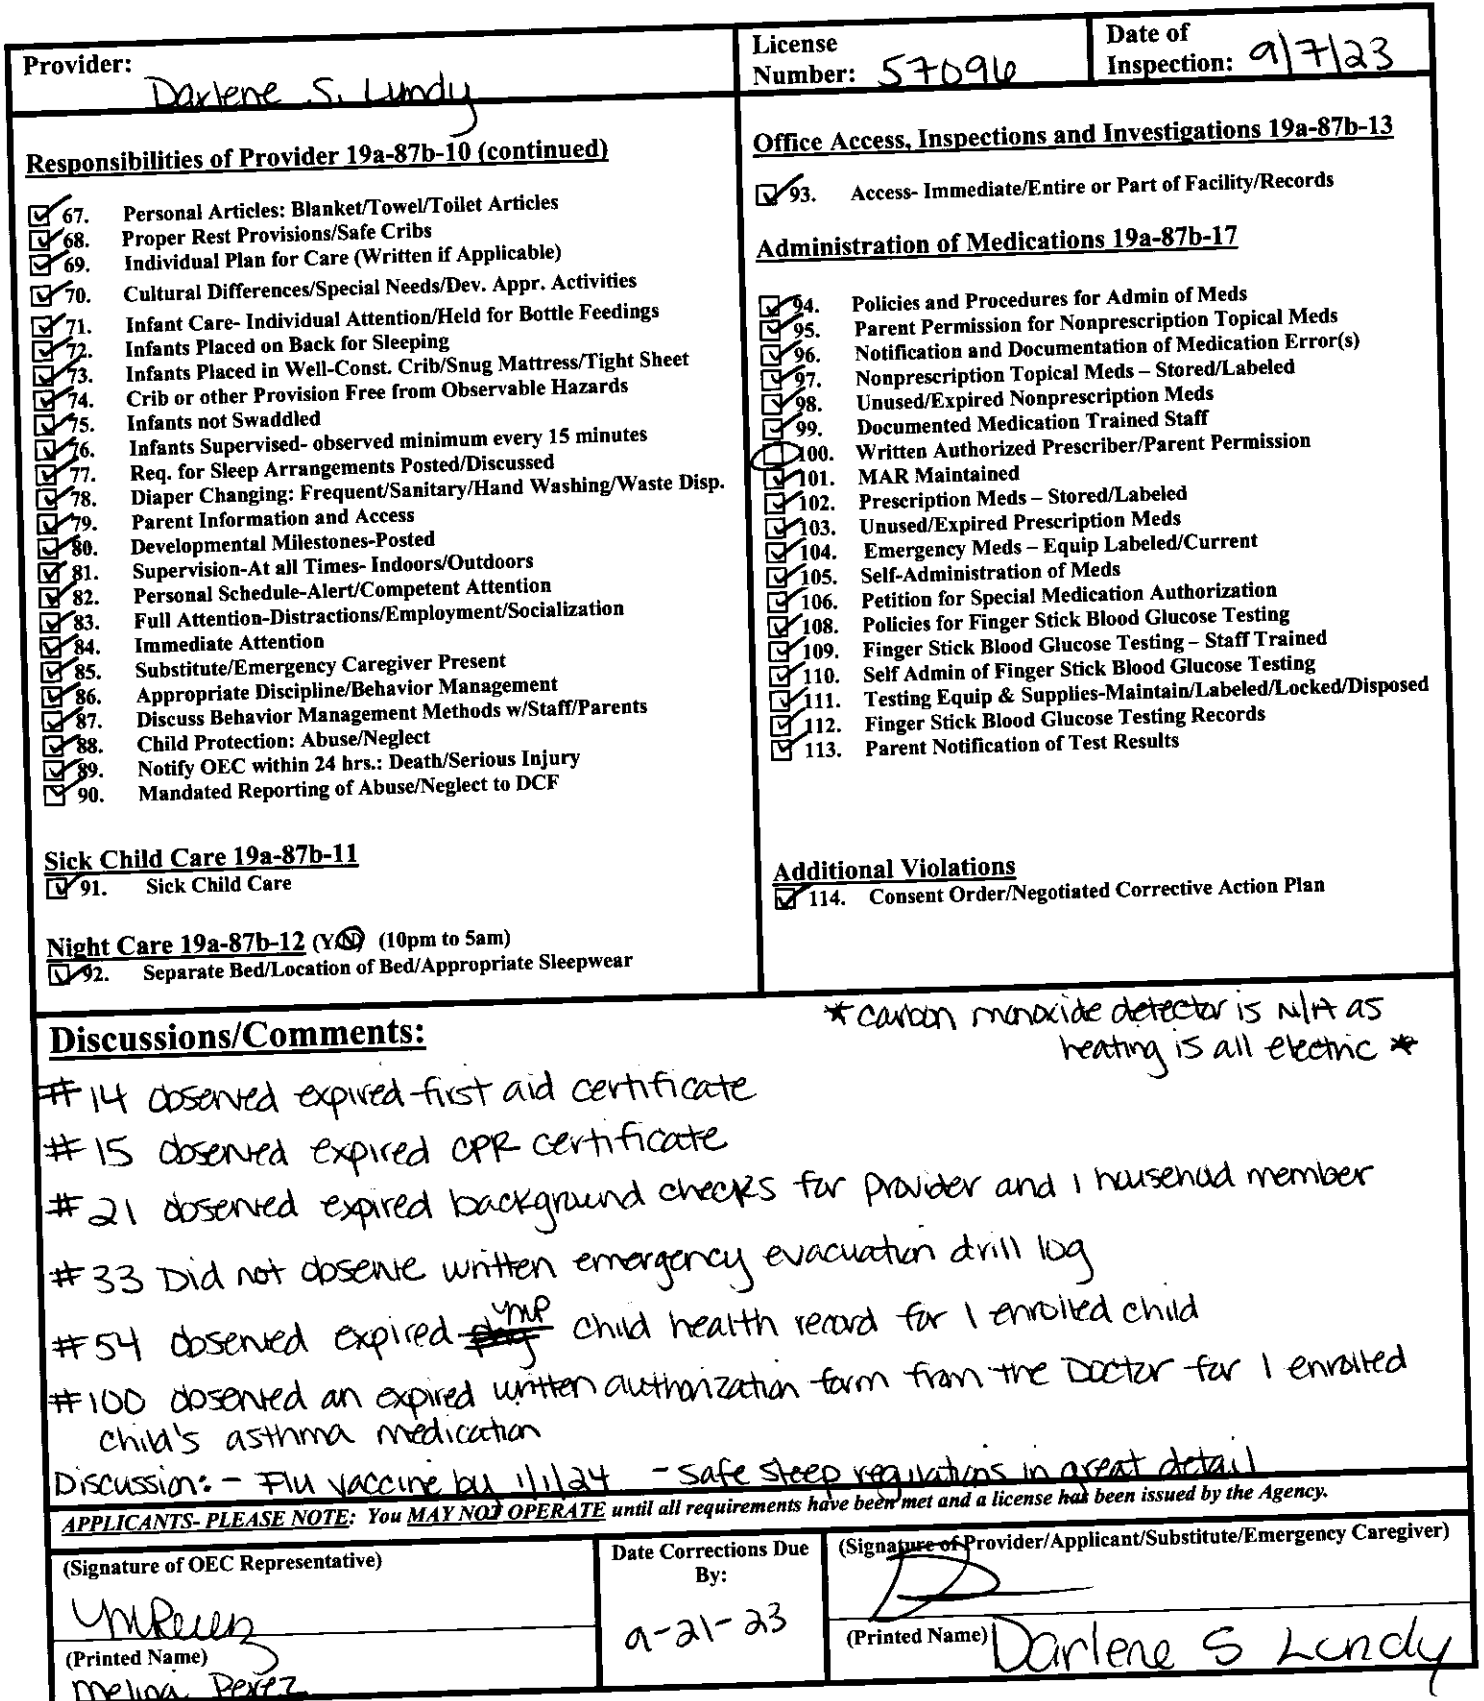 Provider: Darlene S. Lundy
License Number: 57096
Date of Inspection: 9/7/23
Responsibilities of Provider 19a-87b-10 (continued)
67. Personal Articles: Blanket/Towel/Toilet Articles
68. Proper Rest Provisions/Safe Cribs
69. Individual Plan for Care (Written if Applicable)
70. Cultural Differences/Special Needs/Dev. Appr. Activities
71. Infant Care- Individual Attention/Held for Bottle Feedings
72. Infants Placed on Back for Sleeping
73. Infants Placed in Well-Const. Crib/Snug Mattress/Tight Sheet
74. Crib or other Provision Free from Observable Hazards
75. Infants not Swaddled
76. Infants Supervised- observed minimum every 15 minutes
77. Req. for Sleep Arrangements Posted/Discussed
78. Diaper Changing: Frequent/Sanitary/Hand Washing/Waste Disp.
79. Parent Information and Access
80. Developmental Milestones-Posted
81. Supervision-At all Times- Indoors/Outdoors
82. Personal Schedule-Alert/Competent Attention
83. Full Attention-Distractions/Employment/Socialization
84. Immediate Attention
85. Substitute/Emergency Caregiver Present
86. Appropriate Discipline/Behavior Management
87. Discuss Behavior Management Methods w/Staff/Parents
88. Child Protection: Abuse/Neglect
89. Notify OEC within 24 hrs.: Death/Serious Injury
90. Mandated Reporting of Abuse/Neglect to DCF
Sick Child Care 19a-87b-11
91. Sick Child Care
Night Care 19a-87b-12 (Y/N) (10pm to 5am)
92. Separate Bed/Location of Bed/Appropriate Sleepwear
Office Access, Inspections and Investigations 19a-87b-13
93. Access- Immediate/Entire or Part of Facility/Records
Administration of Medications 19a-87b-17
94. Policies and Procedures for Admin of Meds
95. Parent Permission for Nonprescription Topical Meds
96. Notification and Documentation of Medication Error(s)
97. Nonprescription Topical Meds – Stored/Labeled
98. Unused/Expired Nonprescription Meds
99. Documented Medication Trained Staff
100. Written Authorized Prescriber/Parent Permission
101. MAR Maintained
102. Prescription Meds – Stored/Labeled
103. Unused/Expired Prescription Meds
104. Emergency Meds – Equip Labeled/Current
105. Self-Administration of Meds
106. Petition for Special Medication Authorization
108. Policies for Finger Stick Blood Glucose Testing
109. Finger Stick Blood Glucose Testing – Staff Trained
110. Self Admin of Finger Stick Blood Glucose Testing
111. Testing Equip & Supplies-Maintain/Labeled/Locked/Disposed
112. Finger Stick Blood Glucose Testing Records
113. Parent Notification of Test Results
Additional Violations
114. Consent Order/Negotiated Corrective Action Plan
Discussions/Comments:
* carbon monoxide detector is N/A as
heating is all electric *
#14 observed expired first aid certificate
#15 observed expired CPR certificate
#21 observed expired background checks for provider and 1 household member
#33 Did not observe written emergency evacuation drill log
#54 observed expired YMP child health record for 1 enrolled child
#100 observed an expired written authorization form from the Doctor for 1 enrolled
child's asthma medication
Discussion: - Flu vaccine by 1/1/24 - safe sleep regulations in great detail
APPLICANTS- PLEASE NOTE: You MAY NOT OPERATE until all requirements have been met and a license has been issued by the Agency.
(Signature of OEC Representative)
YMPerez
(Printed Name)
Melina Perez
Date Corrections Due By:
9-21-23
(Signature of Provider/Applicant/Substitute/Emergency Caregiver)
(Printed Name) Darlene S Lundy